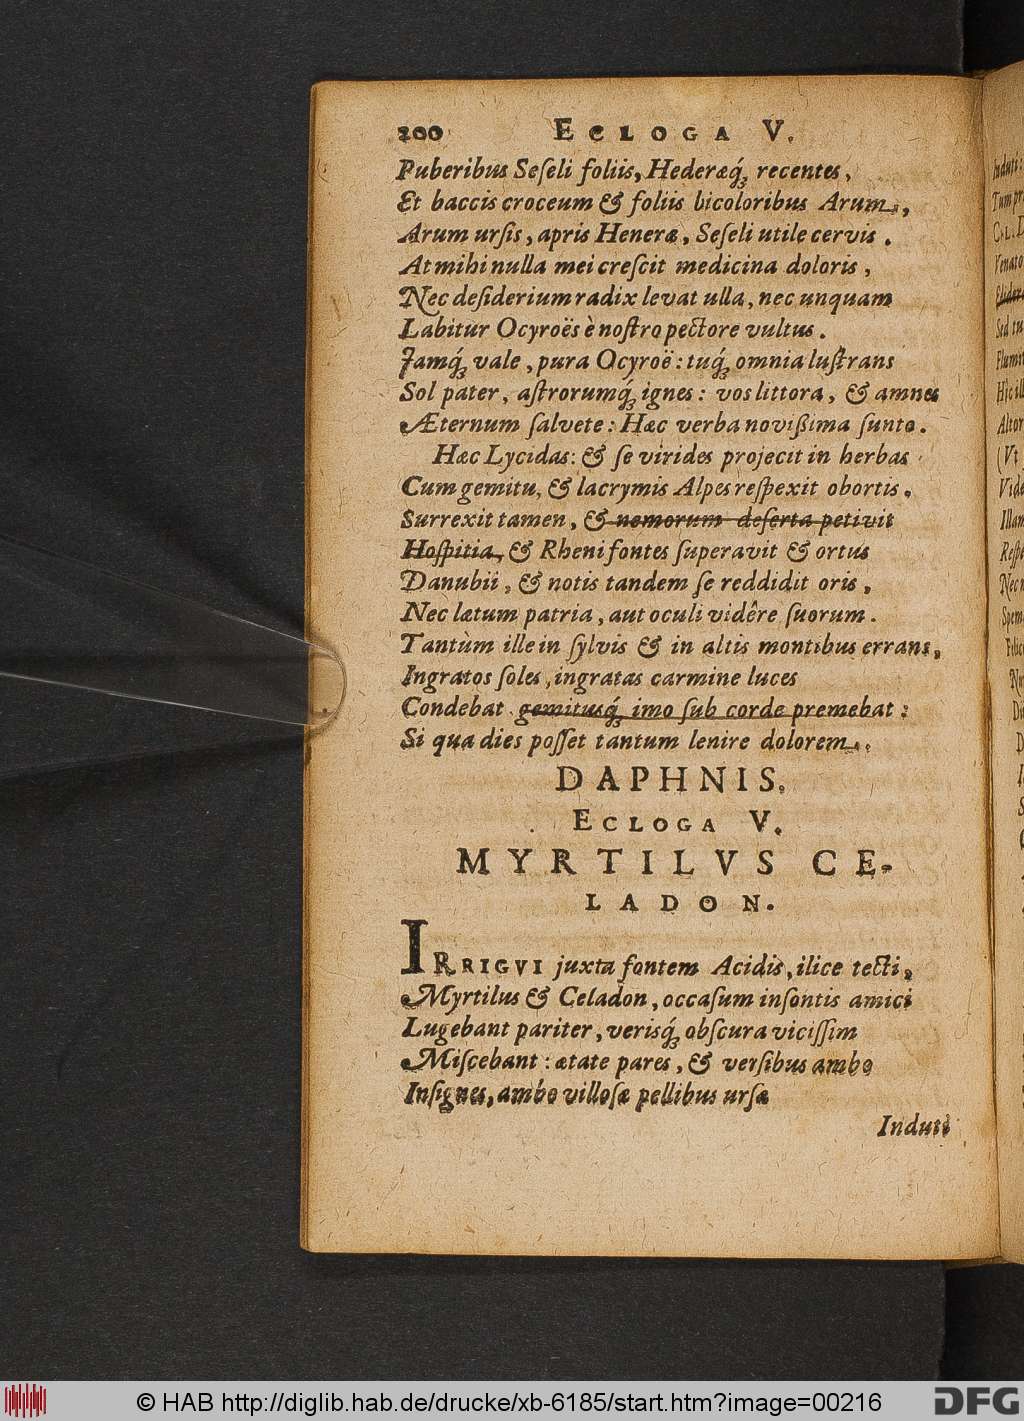 200 ECLOGA V.
Puberibus Seſeli foliis, Hederæq́ꝫ recentes,
Et baccis croceum & foliis bicoloribus Arum,
Arum urſis, apris Heneræ, Seſeli utile cervis.
At mihi nulla mei creſcit medicina doloris,
Nec deſiderium radix levat ulla, nec unquam
Labitur Ocyroës è noſtro pectore vultus.
Jamq́ꝫ vale, pura Ocyroë: tuq́ꝫ omnia luſtrans
Sol pater, aſtrorumq́ꝫ ignes: vos littora, & amnes
Æternum ſalvete: Hæc verba novißima ſunto.
Hæc Lycidas: & ſe virides projecit in herbas
Cum gemitu, & lacrymis Alpes reſpexit obortis.
Surrexit tamen, & nemorum deſerta petivit
Hoſpitia, & Rheni fontes ſuperavit & ortus
Danubii, & notis tandem ſe reddidit oris,
Nec lætum patria, aut oculi vidêre ſuorum.
Tantùm ille in ſylvis & in altis montibus errans,
Ingratos ſoles, ingratas carmine luces
Condebat gemitusq́ꝫ imo ſub corde premebat:
Si qua dies poſſet tantum lenire dolorem.
DAPHNIS.
ECLOGA V.
MYRTILVS CE-
LADON.
IRRIGVI juxta fontem Acidis, ilice tecti,
Myrtilus & Celadon, occaſum inſontis amici
Lugebant pariter, verisq́ꝫ obſcura viciſſim
Miſcebant: ætate pares, & verſibus ambo
Inſignes, ambo villoſæ pellibus urſæ
Induti
© HAB http://diglib.hab.de/drucke/xb-6185/start.htm?image=00216
DFG